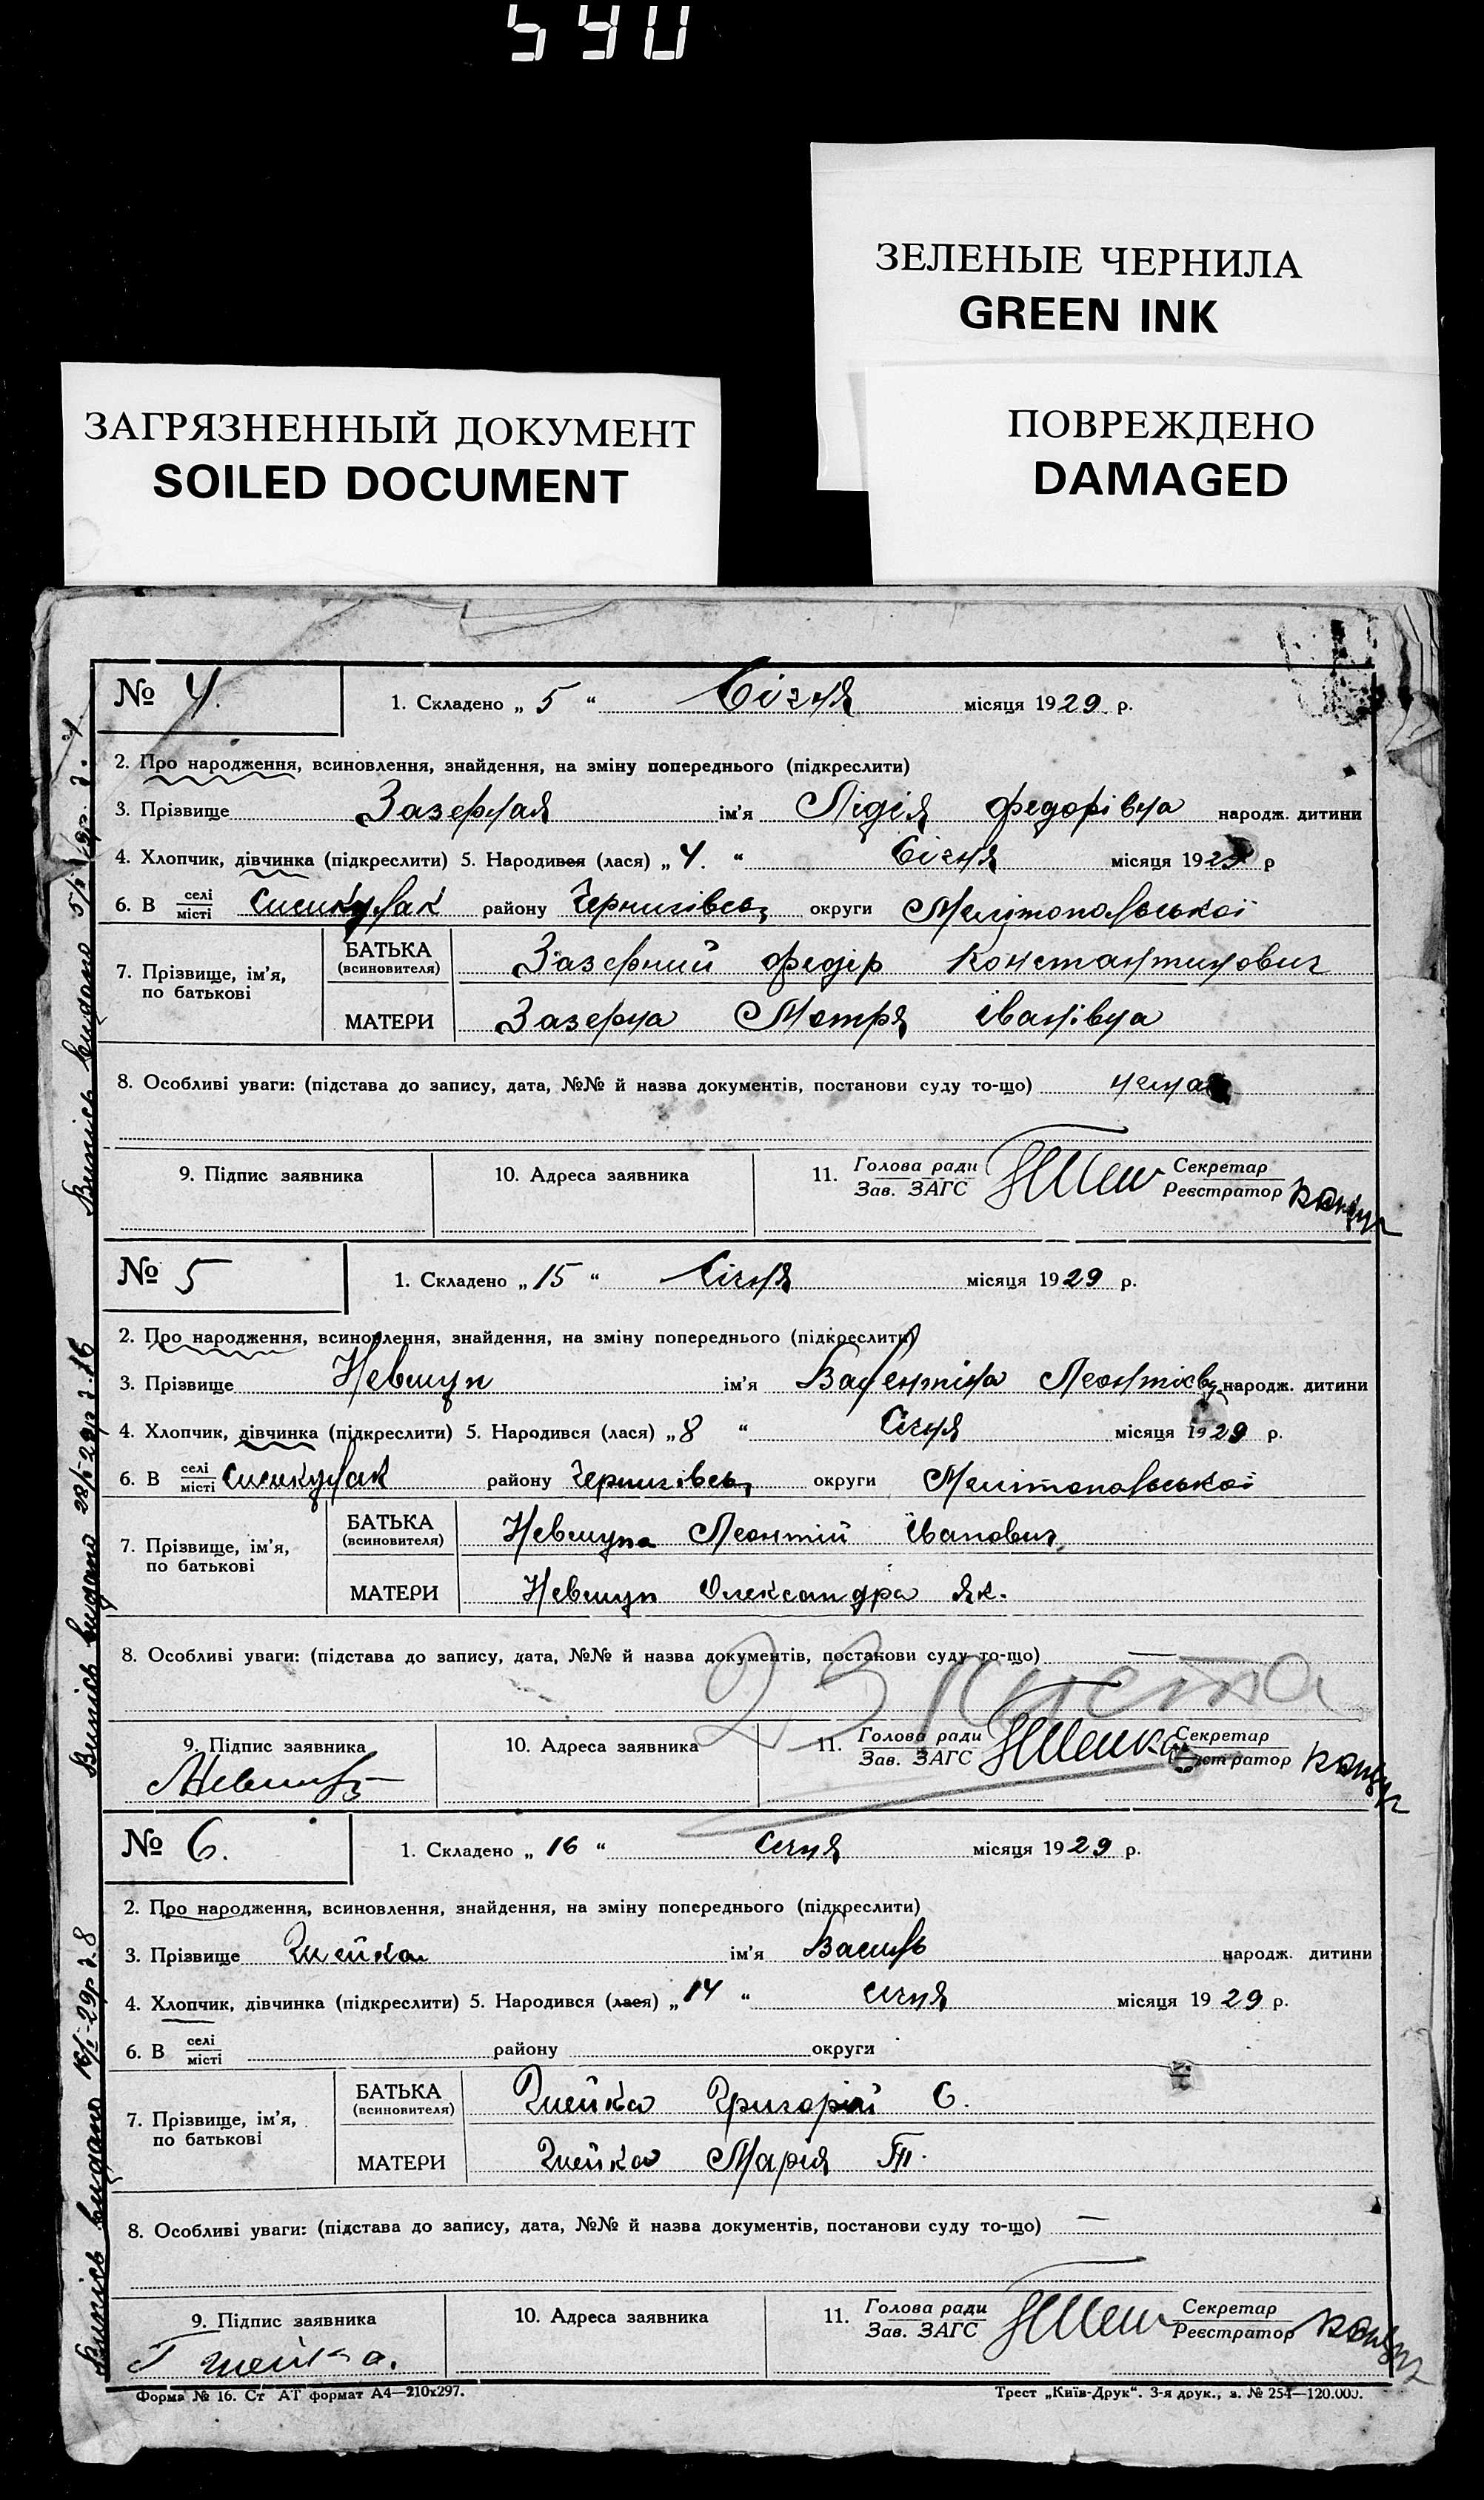 540
ЗЕЛЕНЫЕ ЧЕРНИЛА
GREEN INK
ЗАГРЯЗНЕННЫЙ ДОКУМЕНТ
SOILED DOCUMENT
ПОВРЕЖДЕНО
DAMAGED
№ 4.
1. Складено „ 5 “ Січня місяця 1929 р.
2. Про народження, всиновлення, знайдення, на зміну попереднього (підкреслити)
3. Прізвище Зазерная ім'я Лідія Федорівна народж. дитини
4. Хлопчик, дівчинка (підкреслити) 5. Народився (лася) „ 4. “ Січня місяця 1929 р
6. В селі/місті Сисикулак району Чернигівськ округи Мелітопольської
7. Прізвище, ім'я, по батькові
БАТЬКА (всиновителя) Зазерний Федір Константинович
МАТЕРИ Зазерна Мотря Іванівна
8. Особливі уваги: (підстава до запису, дата, №№ й назва документів, постанови суду то-що) нема
9. Підпис заявника
10. Адреса заявника
11. Голова ради Зав. ЗАГС
Секретар Реєстратор
Випись видано 5/I 29р. з. 4
№ 5
1. Складено „ 15 “ Січня місяця 1929 р.
2. Про народження, всиновлення, знайдення, на зміну попереднього (підкреслити)
3. Прізвище Невшуп ім'я Валентіна Леонтієвн народж. дитини
4. Хлопчик, дівчинка (підкреслити) 5. Народився (лася) „ 8 “ Січня місяця 1929 р.
6. В селі/місті Сисикулак району Чернигівськ округи Мелітопольської
7. Прізвище, ім'я, по батькові
БАТЬКА (всиновителя) Невшупа Леонтій Іванович
МАТЕРИ Невшуп Олександра Як.
8. Особливі уваги: (підстава до запису, дата, №№ й назва документів, постанови суду то-що) —
23 листа
9. Підпис заявника
10. Адреса заявника
11. Голова ради Зав. ЗАГС
Секретар Реєстратор
Випись видано 28/I-29р з. 16
№ 6.
1. Складено „ 16 “ січня місяця 1929 р.
2. Про народження, всиновлення, знайдення, на зміну попереднього (підкреслити)
3. Прізвище ім'я Василь народж. дитини
4. Хлопчик, дівчинка (підкреслити) 5. Народився (лася) „ 14 “ січня місяця 1929 р.
6. В селі/місті району округи
7. Прізвище, ім'я, по батькові
БАТЬКА (всиновителя) Григорій С.
МАТЕРИ Марія Т.
8. Особливі уваги: (підстава до запису, дата, №№ й назва документів, постанови суду то-що) —
9. Підпис заявника
10. Адреса заявника
11. Голова ради Зав. ЗАГС
Секретар Реєстратор
Випись видано 16/I-29р з. 8
Форма № 16. Ст АТ формат А4—210x297.
Трест „Київ-Друк“. 3-я друк., з. № 254—120.000.